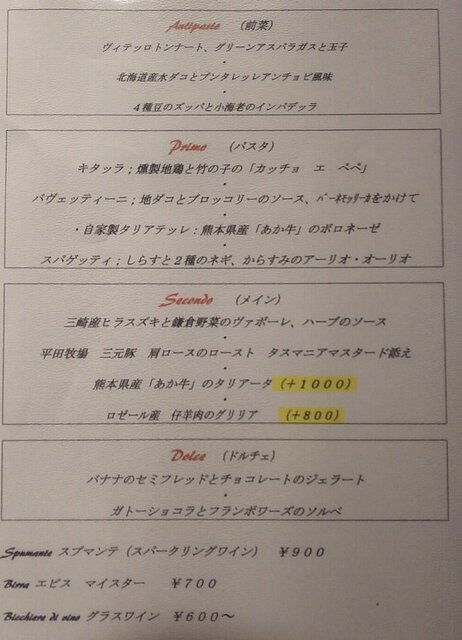 Antipasto (前菜)
ヴィテッロトンナート、グリーンアスパラガスと玉子
・
北海道産水ダコとプンタレッレアンチョビ風味
・
４種豆のズッパと小海老のインパデッラ
Primo (パスタ)
キタッラ；燻製地鶏と竹の子の「カッチョ　エ　ペペ」
・
バヴェッティーニ；地ダコとブロッコリーのソース、ﾊﾟｰﾈﾓｯﾘｰｶをかけて
・
・自家製タリアテッレ：熊本県産「あか牛」のボロネーゼ
・
スパゲッティ；しらすと２種のネギ、からすみのアーリオ・オーリオ
Secondo (メイン)
三崎産ヒラスズキと鎌倉野菜のヴァポーレ、ハーブのソース
・
平田牧場　三元豚　肩ロースのロースト　タスマニアマスタード添え
・
熊本県産「あか牛」のタリアータ（＋１０００）
・
ロゼール産　仔羊肉のグリリア　（＋８００）
Dolce (ドルチェ)
バナナのセミフレッドとチョコレートのジェラート
・
ガトーショコラとフランボワーズのソルベ
Spumante スプマンテ（スパークリングワイン）　￥９００
Birra エビス　マイスター　￥７００
Bicchiere di vino グラスワイン　￥６００～